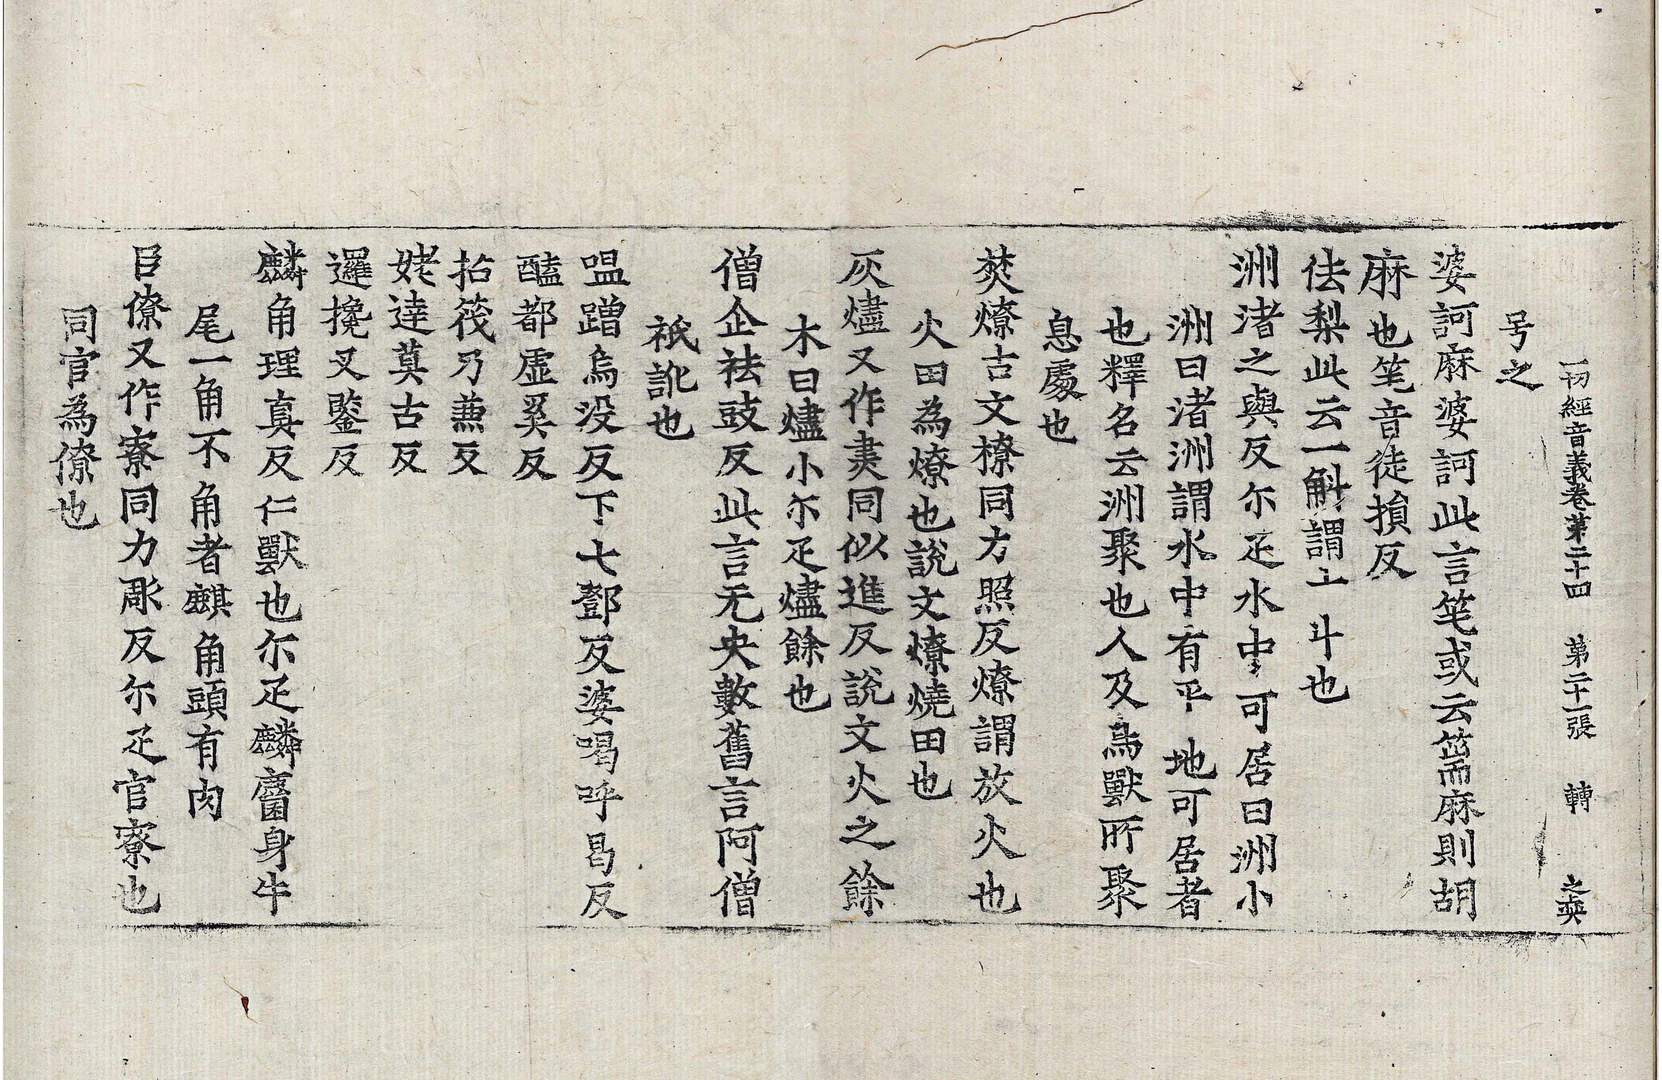 一切經音義卷第二十四 第二十一張 轉 之英
号之
婆訶麻婆訶此言笔或云篅麻則胡
麻也笔音徒損反
佉梨此云一斛謂十斗也
洲渚之與反尓疋水中可居曰洲小
洲曰渚洲謂水中有平地可居者
也釋名云洲聚也人及鳥獸所聚
息處也
焚燎古文尞同力照反燎謂放火也
火田為燎也說文燎燒田也
灰燼又作㶳同似進反說文火之餘
木曰燼小尓疋燼餘也
僧企袪豉反此言无央數舊言阿僧
祇訛也
嗢蹭烏没反下七鄧反婆喝呼曷反
醯都虛奚反
拈筏乃蒹反
姥達莫古反
邏攙叉鑒反
麟角理真反仁獸也尓疋麟麕身牛
尾一角不角者麒角頭有肉
臣僚又作寮同力彫反尓疋官寮也
同官為僚也